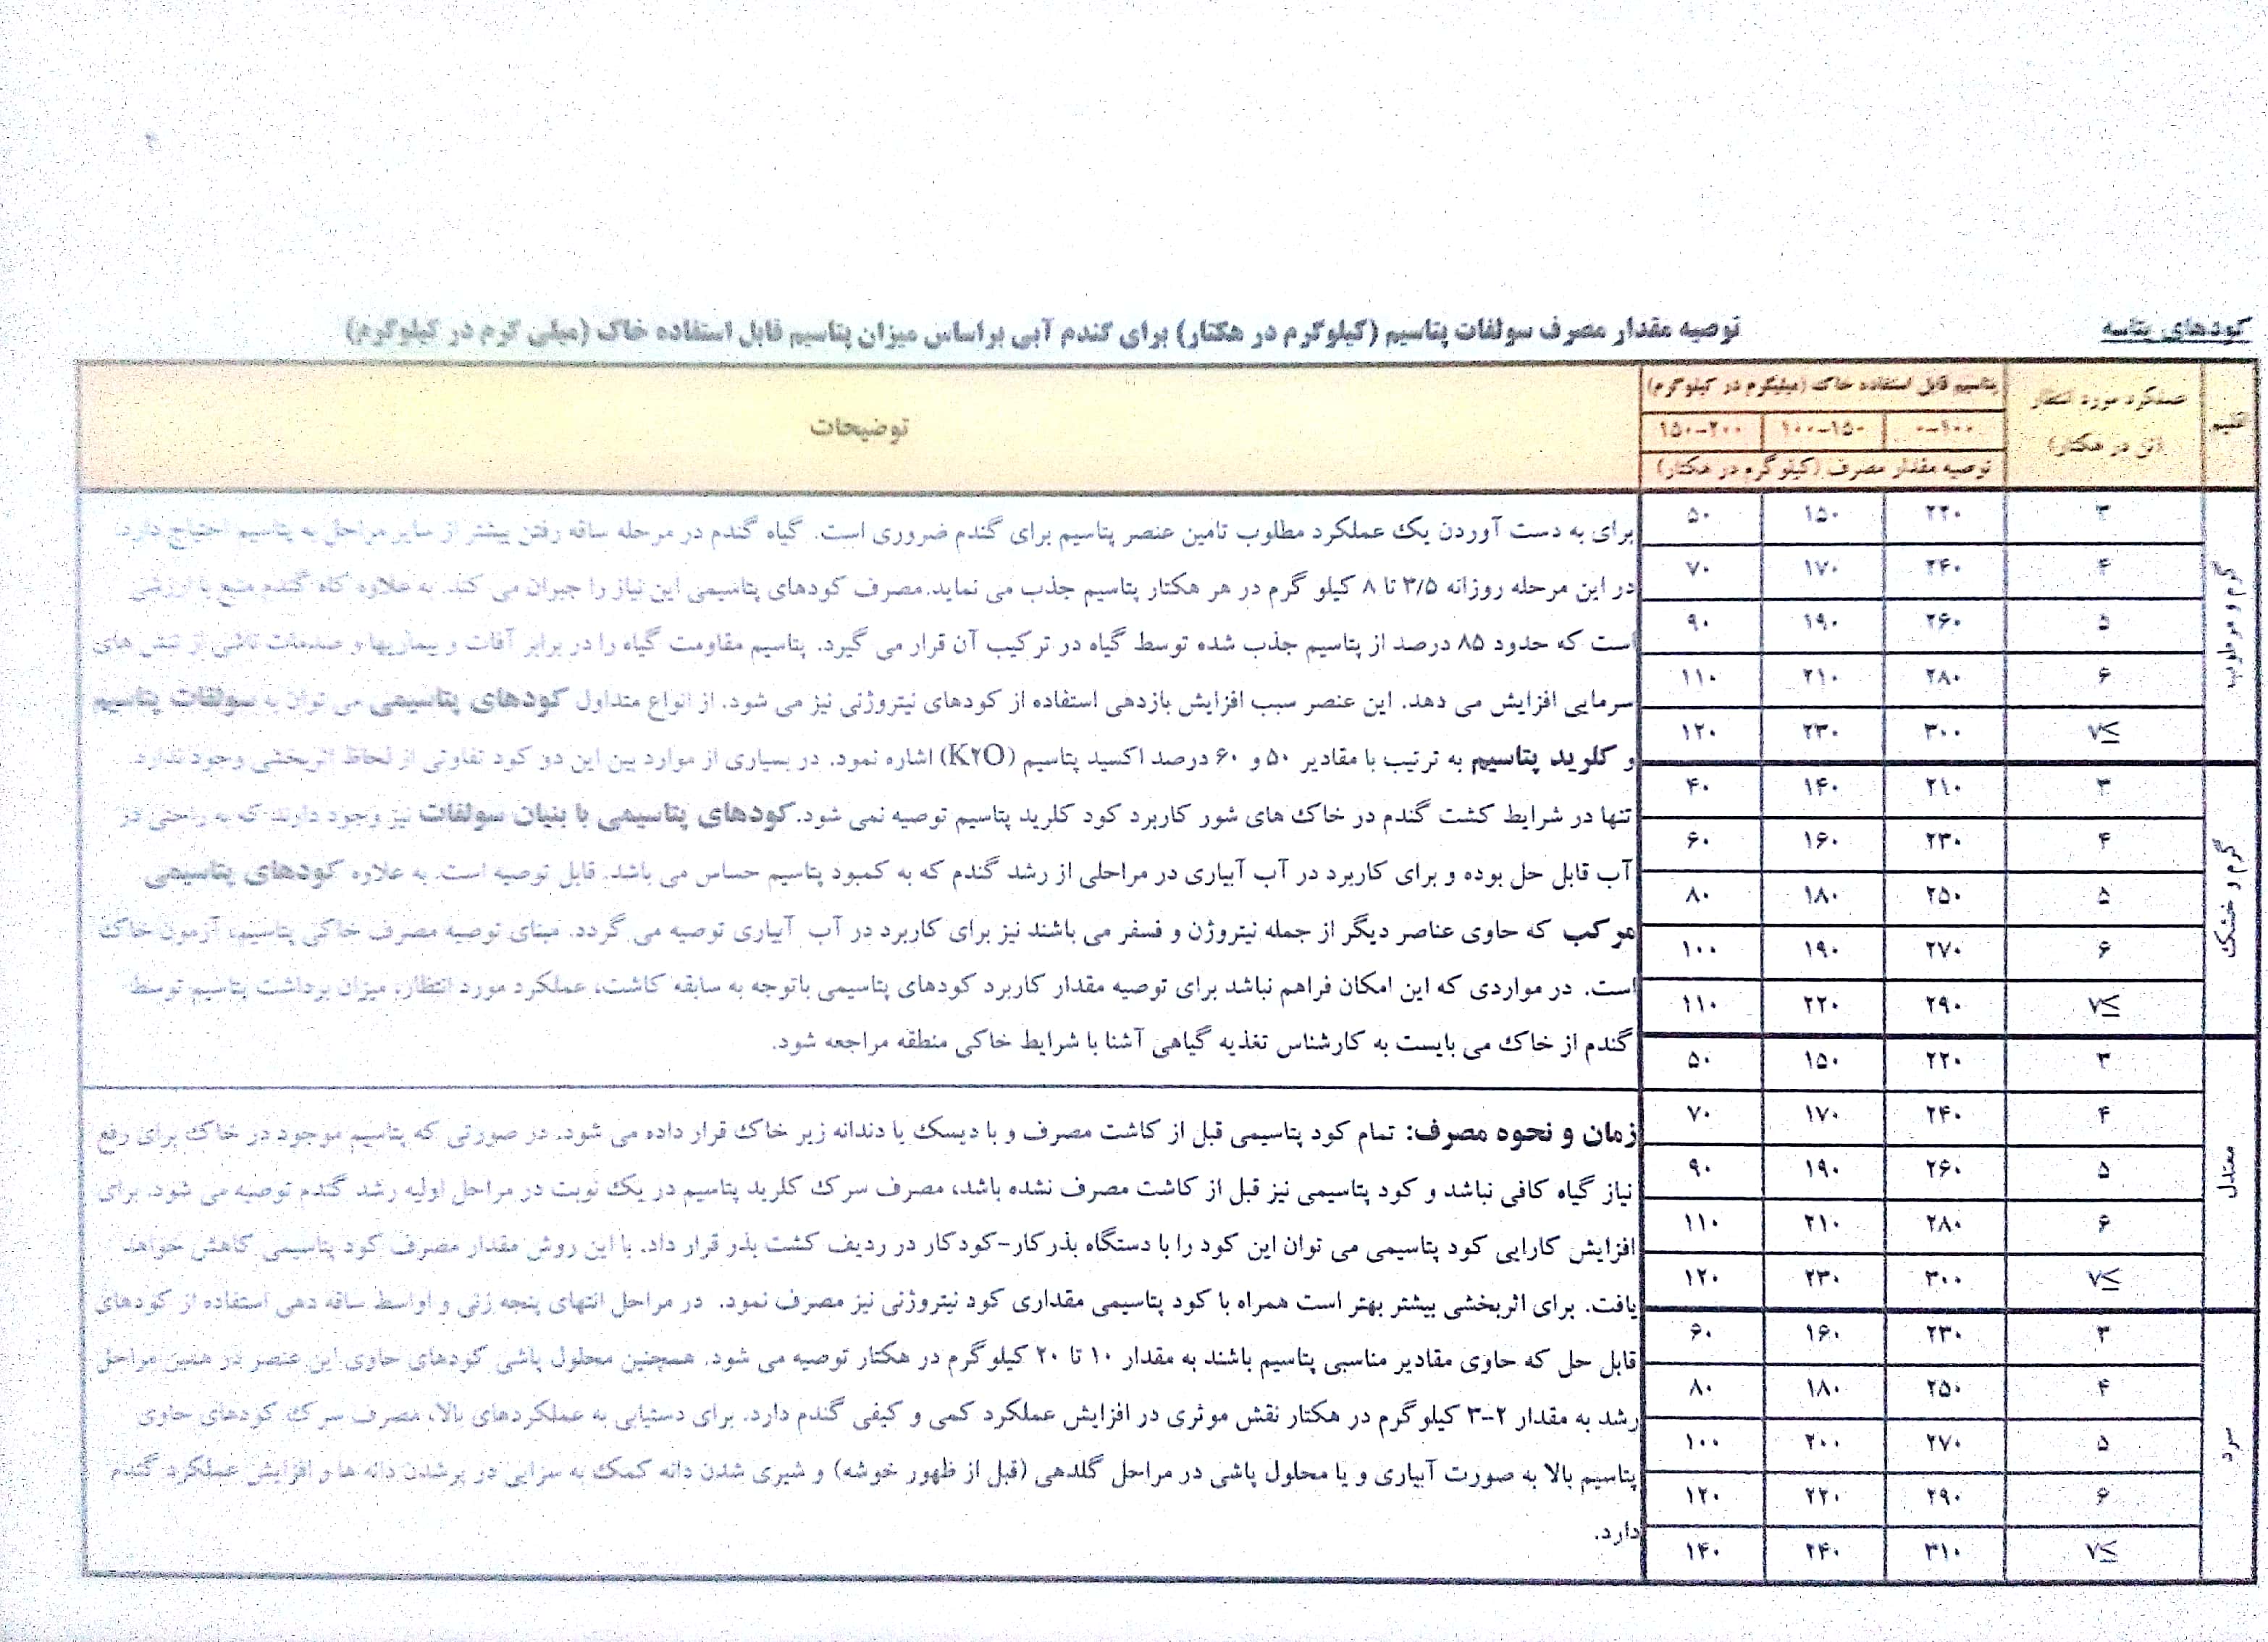 کودهای پتاسه
توصیه مقدار مصرف سولفات پتاسیم (کیلوگرم در هکتار) برای گندم آبی براساس میزان پتاسیم قابل استفاده خاک (میلی گرم در کیلوگرم)
اقلیم
عملکرد مورد انتظار
(تن در هکتار)
پتاسیم قابل استفاده خاک (میلیگرم در کیلوگرم)
۰-۱۰۰ ۱۰۰-۱۵۰ ۱۵۰-۲۰۰
توصیه مقدار مصرف (کیلوگرم در هکتار)
توضیحات
گرم و مرطوب
۳ ۲۲۰ ۱۵۰ ۵۰
۴ ۲۴۰ ۱۷۰ ۷۰
۵ ۲۶۰ ۱۹۰ ۹۰
۶ ۲۸۰ ۲۱۰ ۱۱۰
۷≤ ۳۰۰ ۲۳۰ ۱۲۰
گرم و خشک
۳ ۲۱۰ ۱۴۰ ۴۰
۴ ۲۳۰ ۱۶۰ ۶۰
۵ ۲۵۰ ۱۸۰ ۸۰
۶ ۲۷۰ ۱۹۰ ۱۰۰
۷≤ ۲۹۰ ۲۲۰ ۱۱۰
معتدل
۳ ۲۲۰ ۱۵۰ ۵۰
۴ ۲۴۰ ۱۷۰ ۷۰
۵ ۲۶۰ ۱۹۰ ۹۰
۶ ۲۸۰ ۲۱۰ ۱۱۰
۷≤ ۳۰۰ ۲۳۰ ۱۲۰
سرد
۳ ۲۳۰ ۱۶۰ ۶۰
۴ ۲۵۰ ۱۸۰ ۸۰
۵ ۲۷۰ ۲۰۰ ۱۰۰
۶ ۲۹۰ ۲۲۰ ۱۲۰
۷≤ ۳۱۰ ۲۴۰ ۱۴۰
برای به دست آوردن یک عملکرد مطلوب تامین عنصر پتاسیم برای گندم ضروری است. گیاه گندم در مرحله ساقه رفتن بیشتر از سایر مراحل به پتاسیم احتیاج دارد.
در این مرحله روزانه ۳/۵ تا ۸ کیلو گرم در هر هکتار پتاسیم جذب می نماید.مصرف کودهای پتاسیمی این نیاز را جبران می کند. به علاوه کاه گندم منبع با ارزشی
است که حدود ۸۵ درصد از پتاسیم جذب شده توسط گیاه در ترکیب آن قرار می گیرد. پتاسیم مقاومت گیاه را در برابر آفات و بیماریها و صدمات ناشی از تنش های
سرمایی افزایش می دهد. این عنصر سبب افزایش بازدهی استفاده از کودهای نیتروژنی نیز می شود. از انواع متداول کودهای پتاسیمی می توان به سولفات پتاسیم
و کلرید پتاسیم به ترتیب با مقادیر ۵۰ و ۶۰ درصد اکسید پتاسیم (K۲O) اشاره نمود. در بسیاری از موارد بین این دو کود تفاوتی از لحاظ اثربخشی وجود ندارد.
تنها در شرایط کشت گندم در خاک های شور کاربرد کود کلرید پتاسیم توصیه نمی شود.کودهای پتاسیمی با بنیان سولفات نیز وجود دارند که به راحتی در
آب قابل حل بوده و برای کاربرد در آب آبیاری در مراحلی از رشد گندم که به کمبود پتاسیم حساس می باشد. قابل توصیه است. به علاوه کودهای پتاسیمی
مرکب که حاوی عناصر دیگر از جمله نیتروژن و فسفر می باشند نیز برای کاربرد در آب آبیاری توصیه می گردد. مبنای توصیه مصرف خاکی پتاسیم، آزمون خاک
است. در مواردی که این امکان فراهم نباشد برای توصیه مقدار کاربرد کودهای پتاسیمی باتوجه به سابقه کاشت، عملکرد مورد انتظار، میزان برداشت پتاسیم توسط
گندم از خاک می بایست به کارشناس تغذیه گیاهی آشنا با شرایط خاکی منطقه مراجعه شود.
زمان و نحوه مصرف: تمام کود پتاسیمی قبل از کاشت مصرف و با دیسک یا دندانه زیر خاک قرار داده می شود. در صورتی که پتاسیم موجود در خاک برای رفع
نیاز گیاه کافی نباشد و کود پتاسیمی نیز قبل از کاشت مصرف نشده باشد، مصرف سرک کلرید پتاسیم در یک نوبت در مراحل اولیه رشد گندم توصیه می شود. برای
افزایش کارایی کود پتاسیمی می توان این کود را با دستگاه بذرکار-کودکار در ردیف کشت بذر قرار داد. با این روش مقدار مصرف کود پتاسیمی کاهش خواهد
یافت. برای اثربخشی بیشتر بهتر است همراه با کود پتاسیمی مقداری کود نیتروژنی نیز مصرف نمود. در مراحل انتهای پنجه زنی و اواسط ساقه دهی استفاده از کودهای
قابل حل که حاوی مقادیر مناسبی پتاسیم باشند به مقدار ۱۰ تا ۲۰ کیلوگرم در هکتار توصیه می شود. همچنین محلول پاشی کودهای حاوی این عنصر در همین مراحل
رشد به مقدار ۲-۳ کیلوگرم در هکتار نقش موثری در افزایش عملکرد کمی و کیفی گندم دارد. برای دستیابی به عملکردهای بالا، مصرف سرک کودهای حاوی
پتاسیم بالا به صورت آبیاری و یا محلول پاشی در مراحل گلدهی (قبل از ظهور خوشه) و شیری شدن دانه کمک به سزایی در پرشدن دانه ها و افزایش عملکرد گندم
دارد.